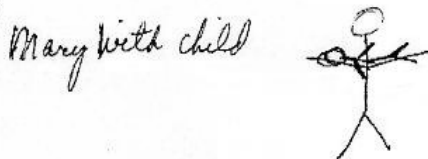 Mary With child